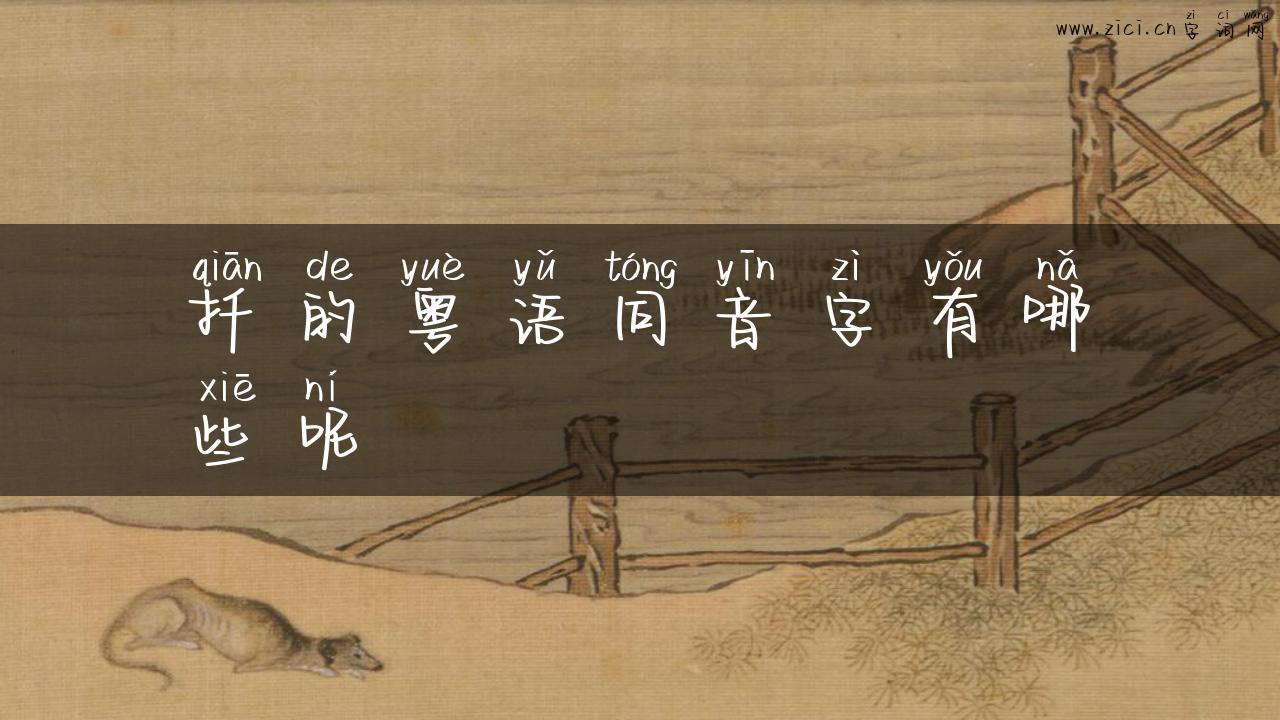 zì cí wǎng
www.zici.cn 字词网
qiān de yuè yǔ tóng yīn zì yǒu nǎ
扦的粤语同音字有哪
xiē ní
些呢